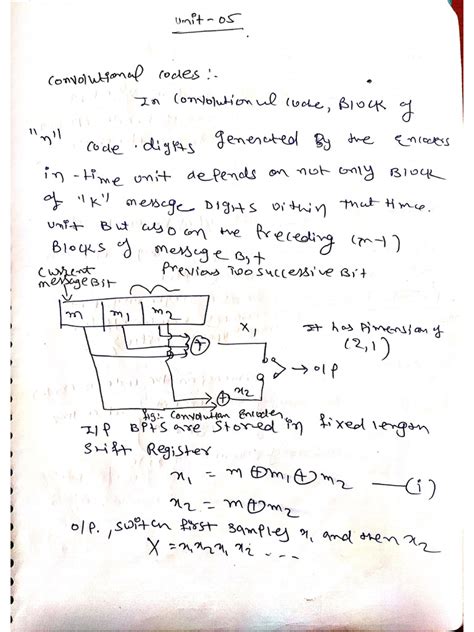 Unit-05
Convolutional codes :-
In Convolutional code, Block of
"n" code digits generated By the Encoder
in -time unit depends on not only Block
of "K" message Digits within that time
unit But also on the Preceding (m-1)
Blocks of message Bit
Current message Bit
Previous Two Successive Bit
m m1 m2
x1
It has Dimension of
(2,1)
O/P
x2
fig:- Convolution Encoder
I/P BITS are stored in fixed length
Shift Register
x1 = m⊕m1⊕m2 —(i)
x2 = m⊕m2
O/P, switch first samples x1 and then x2
X = x1x2x1x2 ....